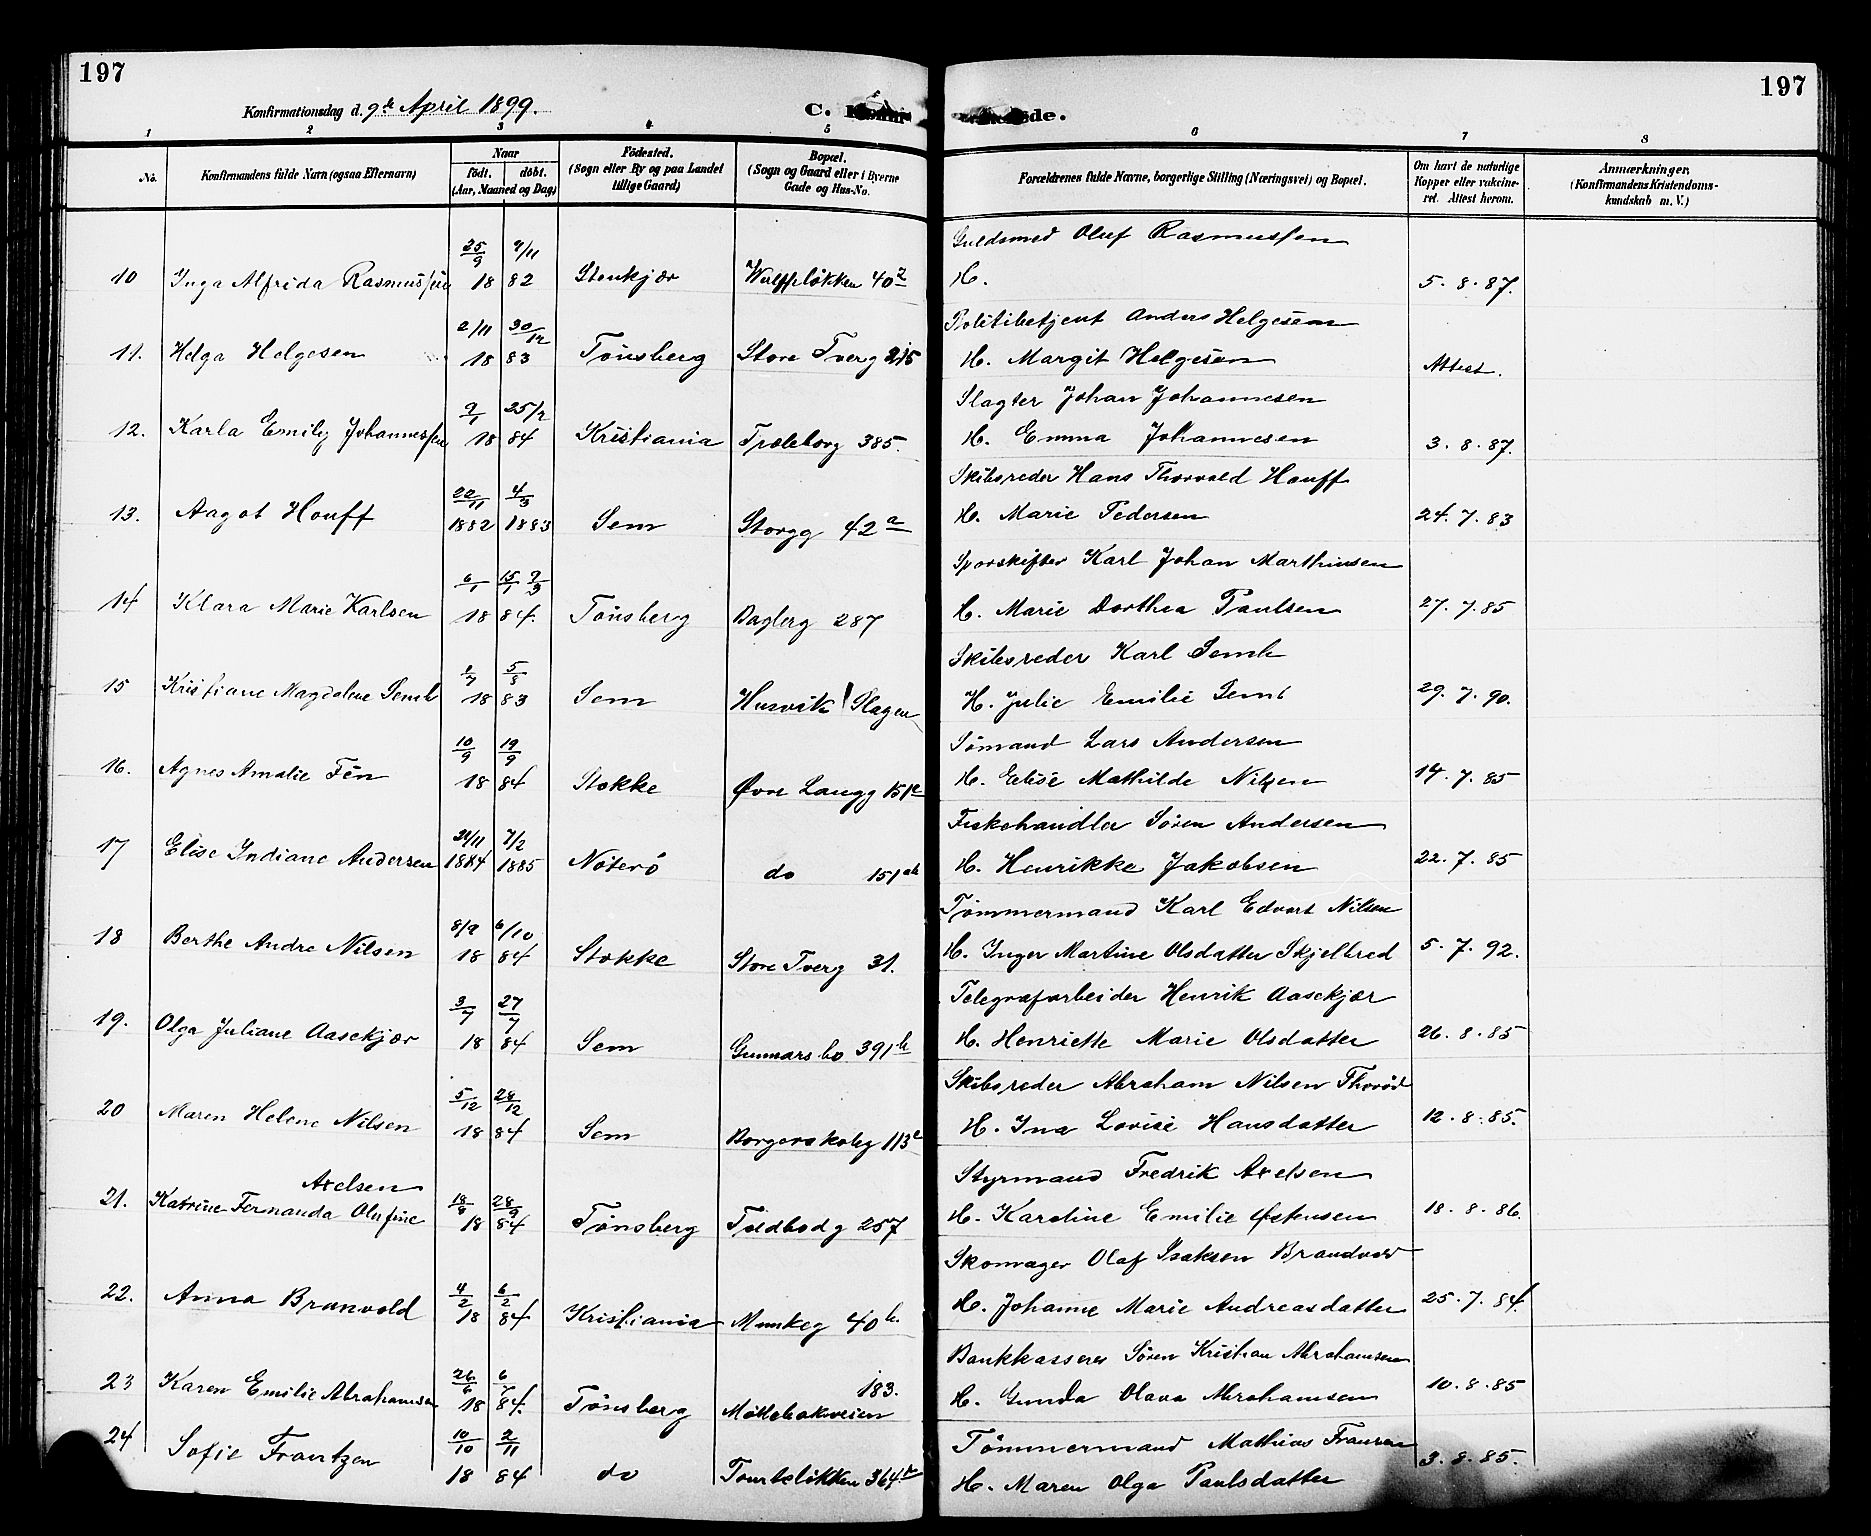 197
197
Konfirmationsdag d. 9de April 1899.
C.
de.
1 2 3 4 5 6 7 8
No.
Konfirmandens fulde Navn (ogsaa Efternavn)
Naar
födt. döbt.
(Aar, Maaned og Dag)
Födested.
(Sogn eller By og paa Landet
tillige Gaard)
Bopæl.
(Sogn og Gaard eller i Byerne
Gade og Hus-No.
Forældrenes fulde Navne, borgerlige Stilling (Næringsvei) og Bopæl.
Om havt de naturlige
Kopper eller vakcine-
ret. Attest herom.
Anmærkninger.
(Konfirmandens Kristendoms-
kundskab m. V.)
25/9 9/11 Guldsmed Oluf Rasmussen
10 Inga Alfrida Rasmussen 18 82 Stenkjær Wulffeløkken 40 H. 5.8.87.
2/11 30/12 Politibetjent Anders Helgesen
11. Helga Helgesen 18 83 Tønsberg Store Tverg 215 H. Margit Helgesen Attest.
9/1 25/2 Slagter Johan Johannesen
12. Karla Emily Johannessen 18 84 Kristiania Træleborg 385. H. Emma Johannesen 3.8.87.
22/11 4/3 Skibsreder Hans Thorvald Houff
13. Aagot Houff 1882 1883 Sem Storgg 42a H. Marie Pedersen 24.7.83
6/1 15/1 9/3 Sporskifter Karl Johan Marthinsen
14 Klara Marie Karlsen 18 84. Tønsberg Bagberg 287 H. Marie Dorthea Paulsen 27.7.85
1/7 5/8 Skibsreder Karl Semb
15 Kristiane Magdalene Semb 18 83 Sem Husvik Slagen H. Julie Emilie Semb 29.7.90.
10/9 19/9 Sömand Lars Andersen
16. Agnes Amalie Fèn 18 84 Stokke Øvre Langg 151 H. Elise Mathilde Nilsen 14.7.85
21/11 7/2 Fiskehandler Sören Andersen
17 Elise Indiane Andersen 1884 1885 Nøterö do 151ab H. Henrikke Jakobsen 22.7.85
8/9 6/10 Tømmermand Karl Edvart Nilsen
18 Berthe Andre Nilsen 18 84 Stokke Store Tverg 31. H. Inger Martine Olsdatter Skjelbred 5.7.92.
3/7 27/7 Telegrafarbeider Henrik Aasekjær
19. Olga Juliane Aasekjær 18 84 Sem Gunnarsbo 391b H. Henriette Marie Olsdatter 26.8.85
5/12 28/12 Skibsreder Abraham Nilsen Thorød
20 Maren Helene Nilsen 18 84 Sem Borgerskoleg 113 H. Ina Lovise Hansdatter 12.8.85.
Axelsen 18/8 28/9 Styrmand Fredrik Axelsen
21. Katrine Fernanda Olufine 18 84 Tønsberg Toldbodg 257 H. Karoline Emilie Østensen 18.8.86.
4/2 6/2 Skomager Olaf Isaksen Brandvold
22. Anna Branvold 18 84 Kristiania Munkeg 40b. H. Johanne Marie Andreasdatter 25.7.84.
26/6 6/7 183. Bankkasserer Sören Kristian Abrahamsen
23 Karen Emilie Abrahamsen 18 84. Tønsberg Møllebakveien H. Gunda Olava Abrahamsen 10.8.85
10/10 2/11 Tømmermand Mathias Fransen
24 Sofie Frantzen 18 84 do 364 H. Maren Olga Paulsdatter 3.8.85.